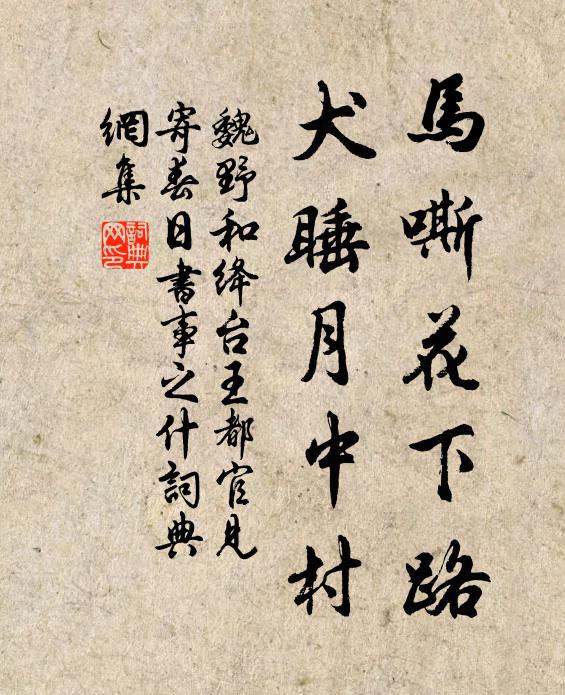 馬嘶花下路
犬睡月中村
魏野和绛台王都官見
寄春日書事之什詞典
網集
詞典
网印